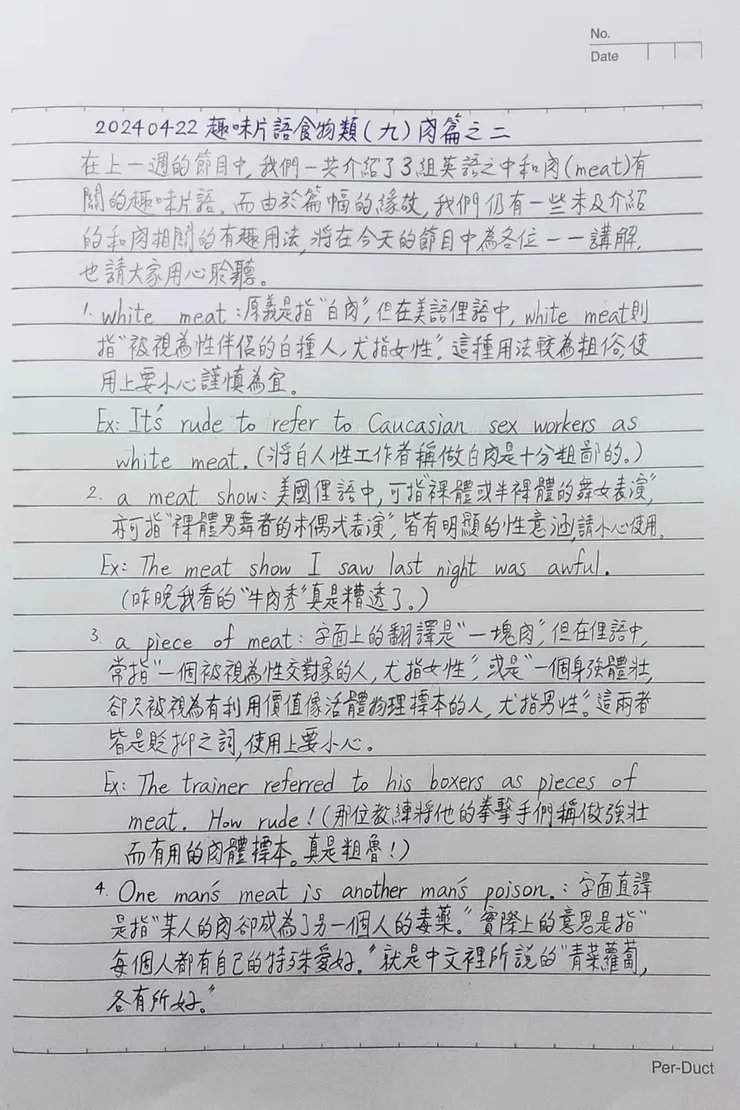 No.
Date
20240422 趣味片語食物類(九)肉篇之二
在上一週的節目中,我們一共介紹了3組英語之中和肉(meat)有
關的趣味片語。而由於篇幅的緣故,我們仍有一些未及介紹
的和肉相關的有趣用法,將在今天的節目中為各位一一講解,
也請大家用心聆聽。
1. white meat:原義是指"白肉",但在美語俚語中,white meat則
指"被視為性伴侶的白種人,尤指女性"。這種用法較為粗俗,使
用上要小心謹慎為宜。
Ex: It's rude to refer to Caucasian sex workers as
white meat.(將白人性工作者稱做白肉是十分粗鄙的。)
2. a meat show:美國俚語中,可指"裸體或半裸體的舞女表演",
亦可指"裸體男舞者的木偶式表演",皆有明顯的性意涵,請小心使用。
Ex: The meat show I saw last night was awful.
(昨晚我看的"牛肉秀"真是糟透了。)
3. a piece of meat:字面上的翻譯是"一塊肉",但在俚語中,
常指"一個被視為性交對象的人,尤指女性",或是"一個身強體壯,
卻只被視為有利用價值像活體物理標本的人,尤指男性"。這兩者
皆是貶抑之詞,使用上要小心。
Ex: The trainer referred to his boxers as pieces of
meat. How rude!(那位教練將他的拳擊手們稱做強壯
而有用的肉體標本。真是粗魯!)
4. One man's meat is another man's poison.:字面直譯
是指"某人的肉卻成為了另一個人的毒藥。"實際上的意思是指"
每個人都有自己的特殊愛好。"就是中文裡所說的"青菜蘿蔔,
各有所好。"
Per-Duct